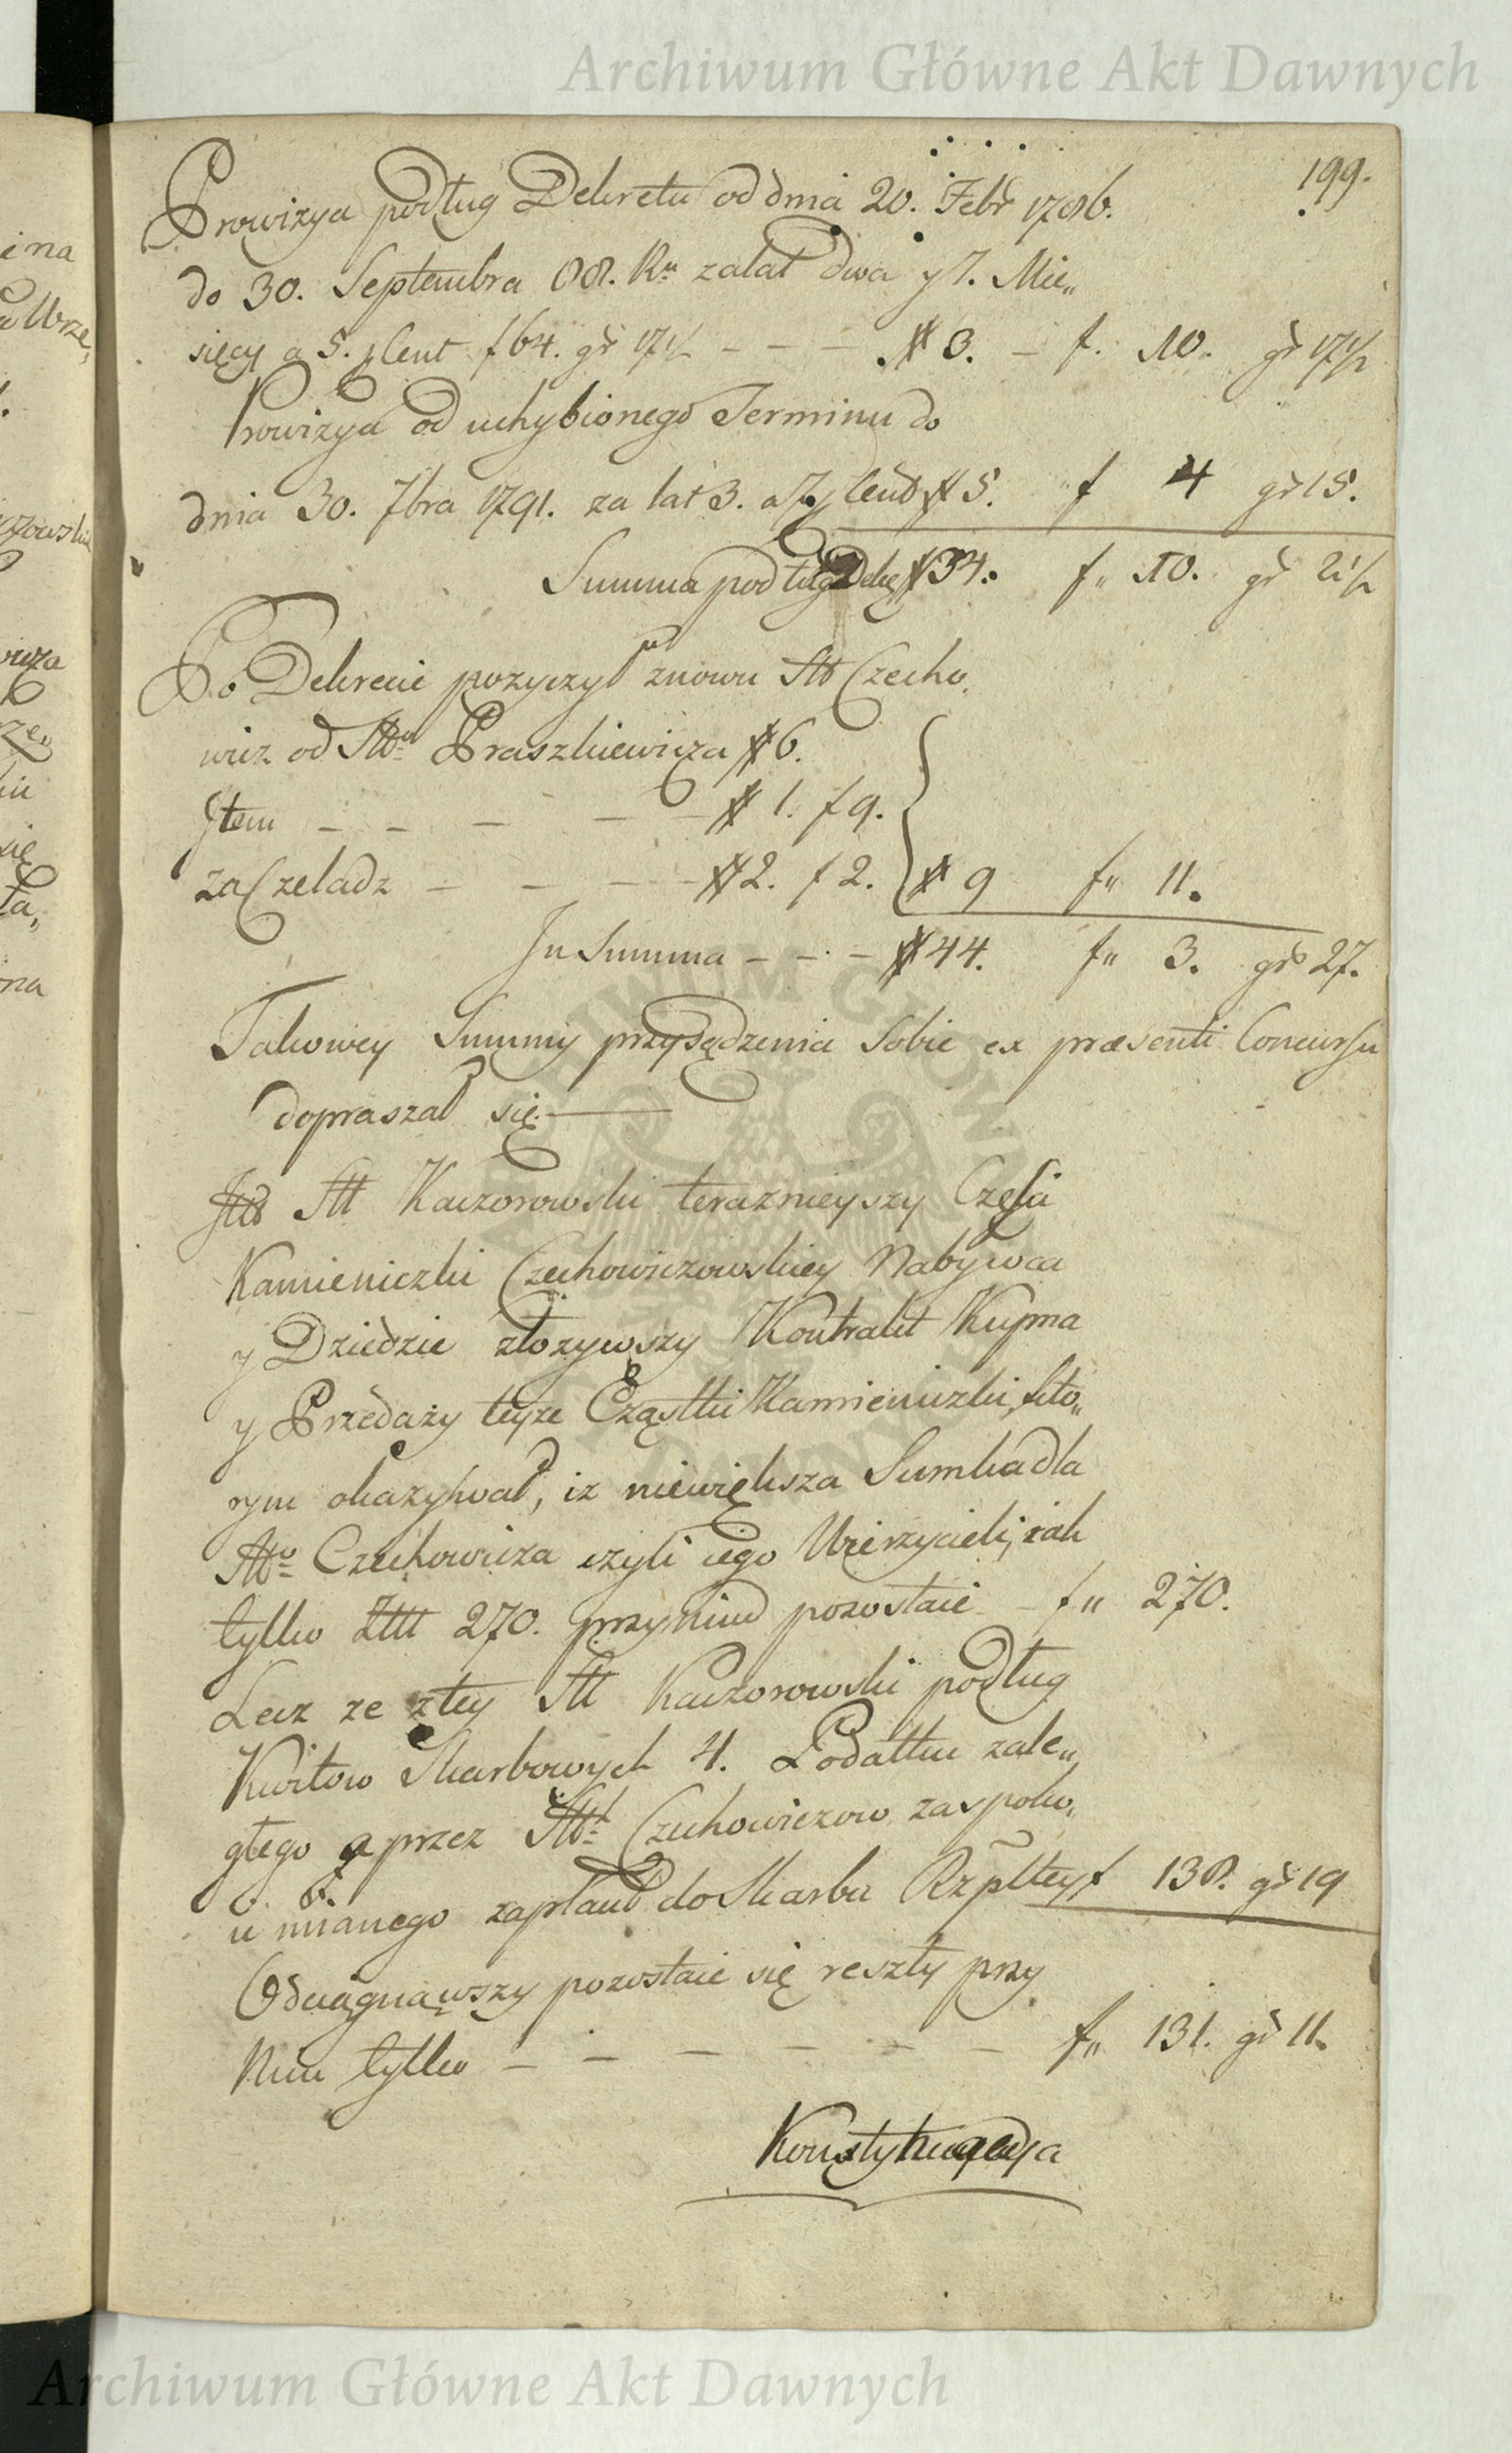 Archiwum Główne Akt Dawnych
199.
Prowizya podług Dekretu od dnia 20. Febr 1786.
do 30. Septembra 88. Ru zalat dwa y 7. Mie„
sięcy a 5. pCent f 64. gr 17½ – – – # 3. – f. 10. gr 17½
Prowizya od uchybionego Terminu do
dnia 30. 7bra 1791. za lat 3. a 7 pCent # 5. f 4 gr 15.
Summa podług Dekr # 34. f„ 10. gr
Po Dekrecie pozyczył znowu Stt Czecho„
wicz od Praszkiewicza # 6.
Jtem – – – – – # 1. f 9.
za Czeladz – – – – # 2. f 2. # 9 f„ 11.
Jn Summa – – – # 44. f„ 3. gr 27.
Takowey Summy przysądzenia Sobie ex præsenti Concursu
dopraszał się. —
Stt Kaczorowski teraznieyszy Części
Kamieniczki Czechowiczowskiey Nabywca
y Dziedzic złozywszy Kontrakt Kupna
y Przedaży teyze Cząstki Kamieniczki, kto„
rym okazywał, iz niewiększa Sumka dla
Czechowicza czyli iego Wierzycieli, iak
tylko Ztt 270. przy nim pozostaie – f„ 270.
Lecz ze ztey Stt Kaczorowski podług
Kwitow Skarbowych 4. Podatku zale„
głego a przez Czechowiczow zaspoko„
u mianego zapłacił do Skarbu Rzpltey f 138. gr 19
Odciągnąwszy pozostaie się reszty przy
Nim tylko – – – – – – f„ 131. gr 11.
Konstytucya
Archiwum Główne Akt Dawnych